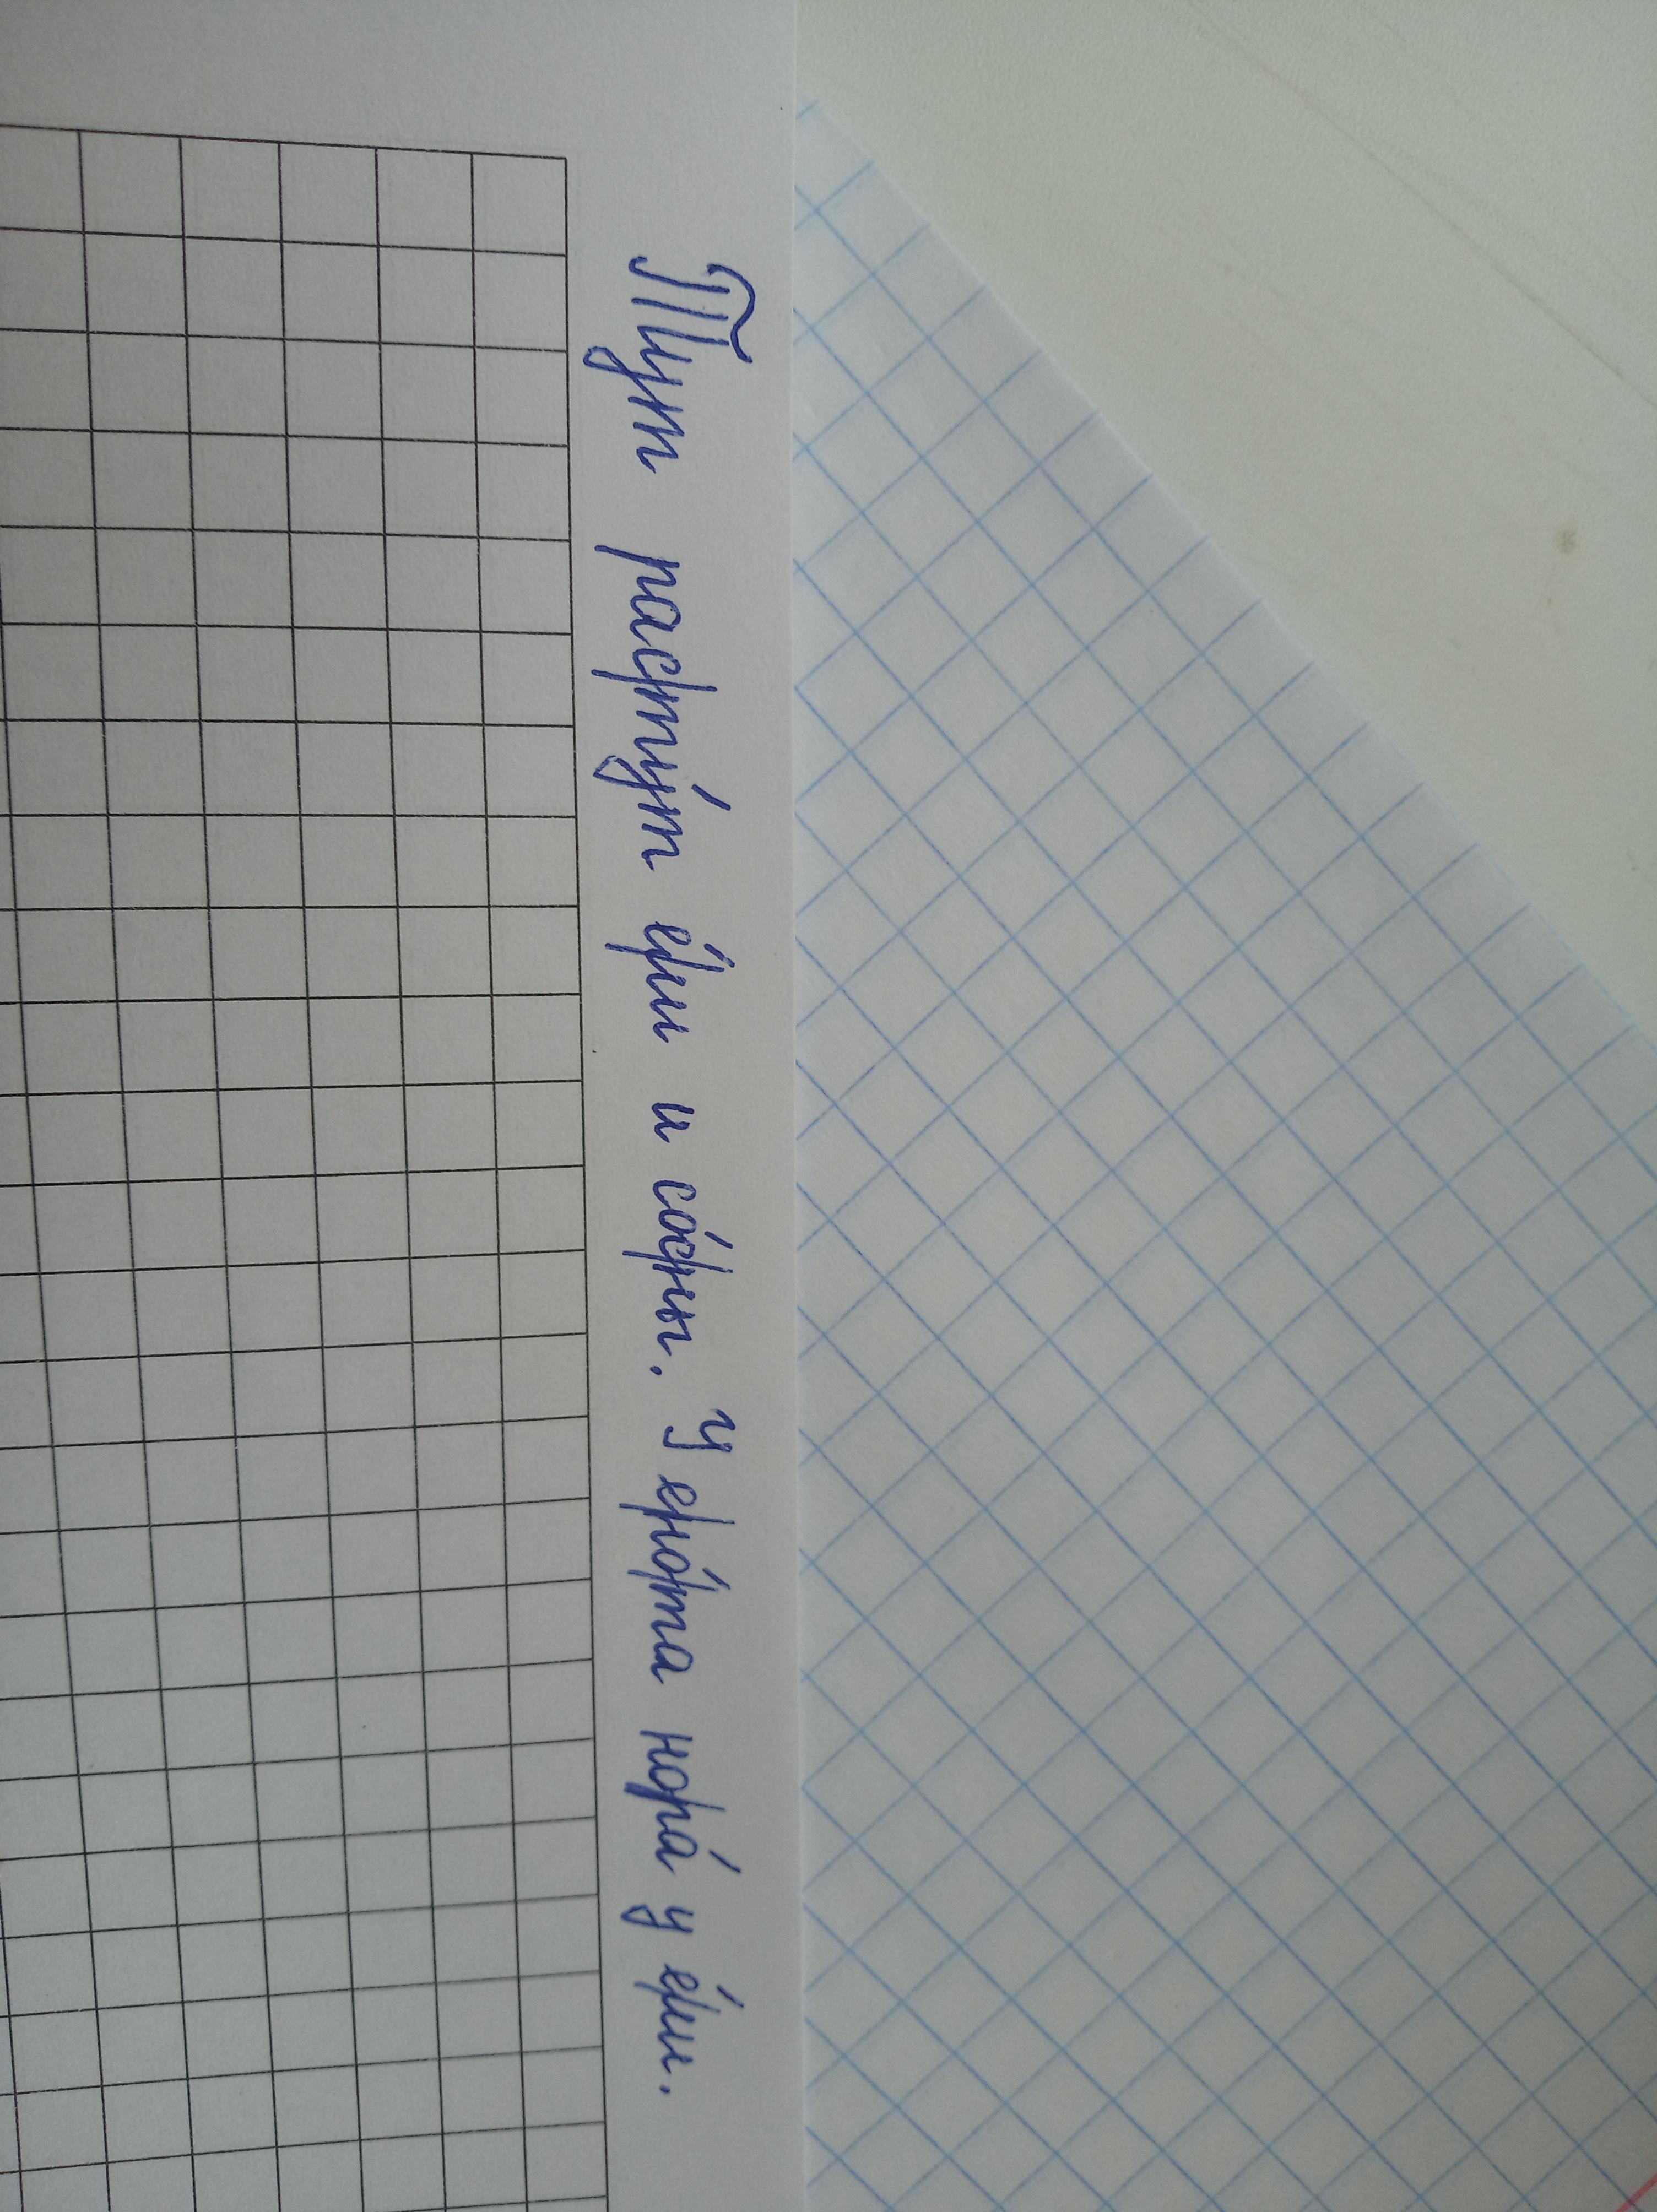 Тут расту́т е́ли и со́сны. У ено́та нора́ у е́ли.